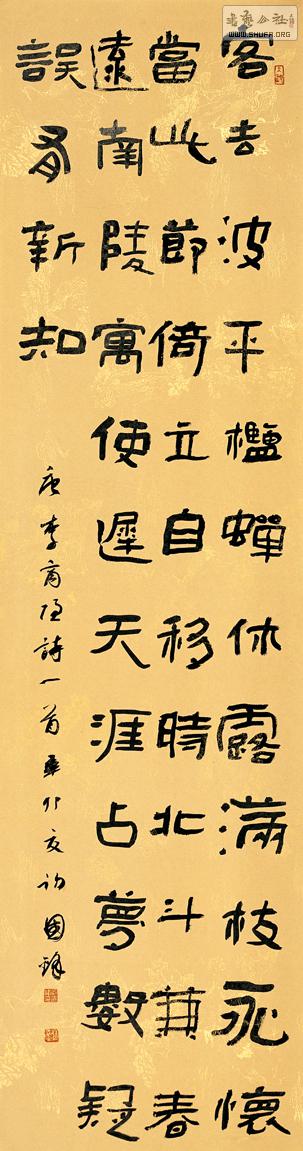 客去波平檻蟬休露滿枝永懷
當此節倚立自移時北斗兼春
遠南陵寓使遲天涯占夢數疑
誤有新知
唐李商隐詩一首辛卯夏初國
書藝公社
WWW.SHUFA.ORG